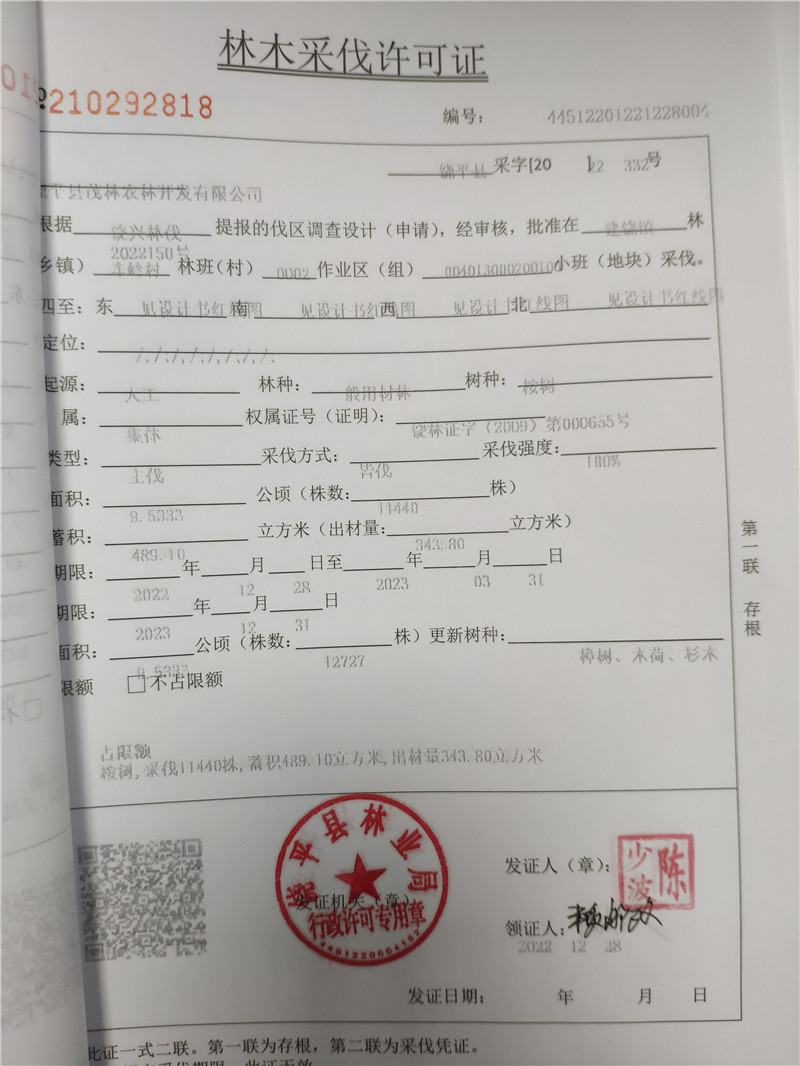 林木采伐许可证
210292818
编号： 44512201221228004
饶平县 采字[20 22 ] 332 号
平县茂林农林开发有限公司
根据 饶兴林伐 提报的伐区调查设计（申请），经审核，批准在 建饶镇 林
2022150号
乡镇） 林班(村) 0002 作业区（组） 00401300020010 小班（地块）采伐。
四至：东 见设计书红线图 南 见设计书红线图 西 见设计书红线图 北 见设计书红线图
定位： /./././././.
起源： 人工 林种： 一般用材林 树种： 桉树
属： 集体 权属证号（证明）： 饶林证字（2009）第000655号
类型： 主伐 采伐方式： 皆伐 采伐强度： 100%
面积： 9.5333 公顷（株数： 11440 株）
蓄积： 489.10 立方米（出材量： 343.80 立方米）
期限： 2022 年 12 月 28 日至 2023 年 03 月 31 日
期限： 2023 年 12 月 31 日
面积： 9.5333 公顷（株数： 12727 株）更新树种： 樟树、木荷、杉木
限额 □不占限额
占限额
桉树,采伐11440株,蓄积489.10立方米,出材量343.80立方米
第一联 存根
饶平县林业局
行政许可专用章
发证机关（章）
发证人（章）：
陈少波
领证人：
2022 12 28
发证日期： 年 月 日
此证一式二联。第一联为存根，第二联为采伐凭证。